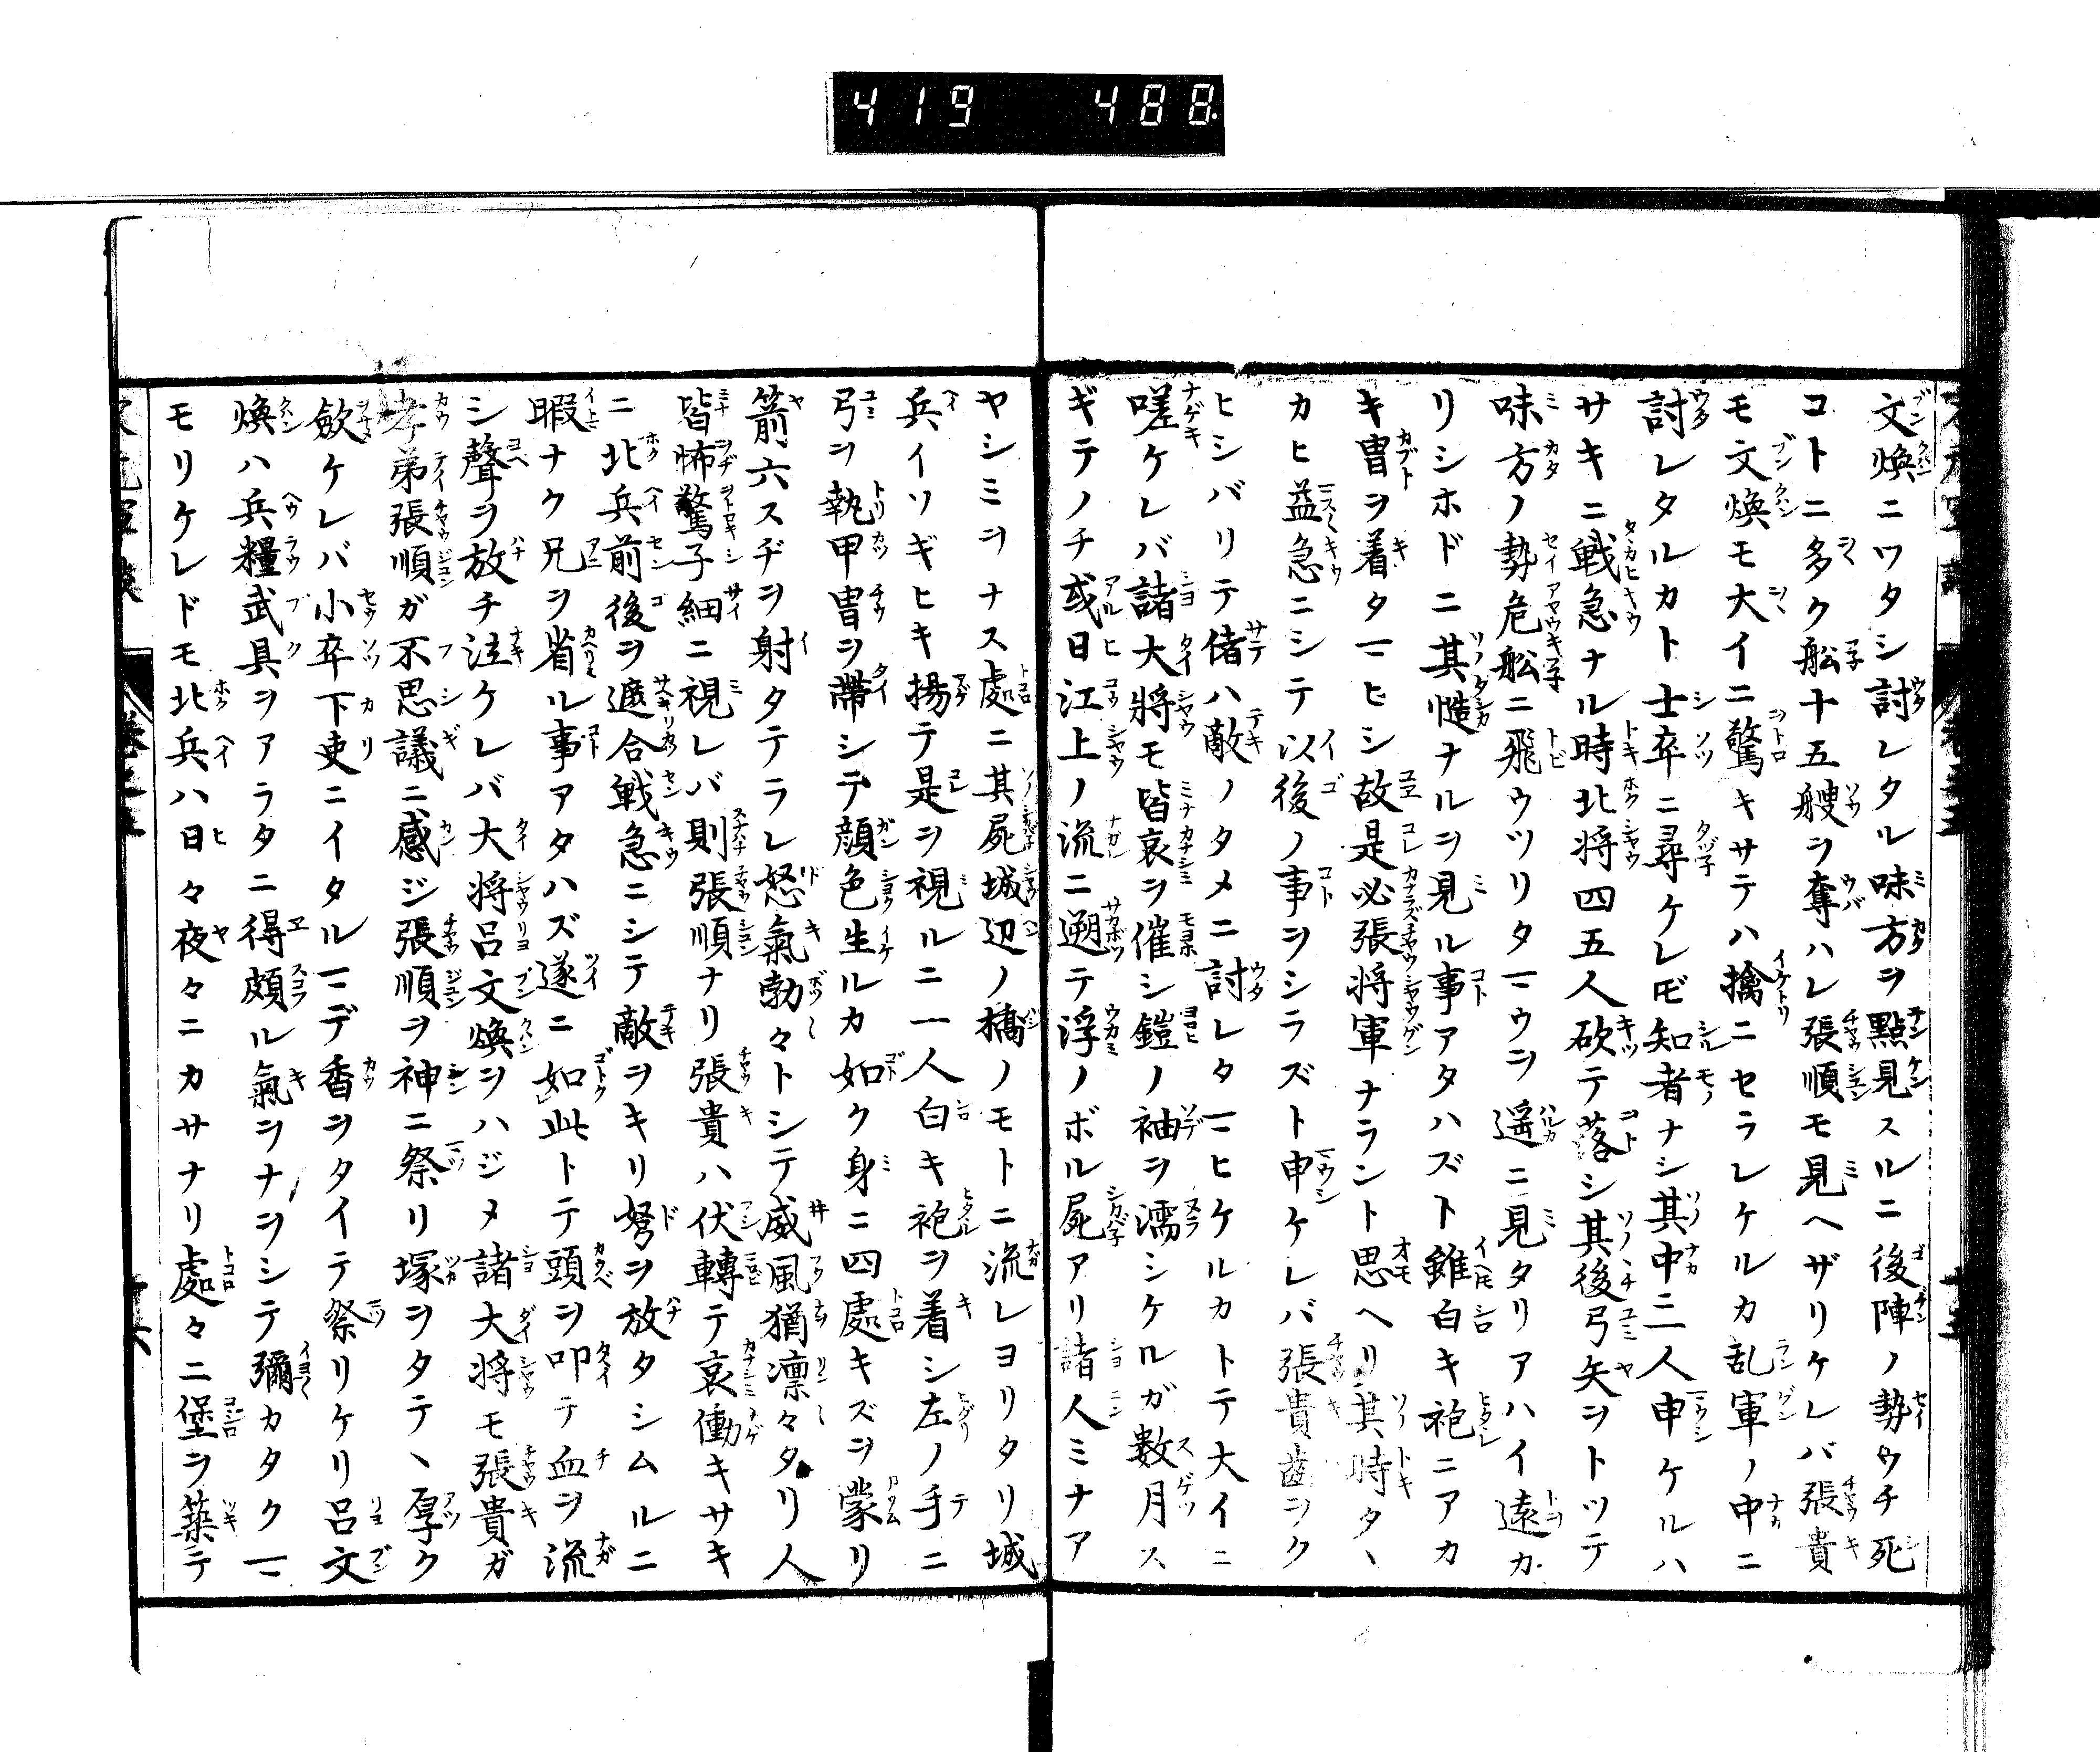 419 488
文煥ニワタシ討レタル味方ヲ點見スルニ後陣ノ勢ウチ死
コトニ多ク舩十五艘ヲ奪ハレ張順モ見ヘザリケレバ張貴
モ文煥モ大イニ驚キサテハ擒ニセラレケルカ乱軍ノ中ニ
討レタルカト士卒ニ尋ケレ𪜈知者ナシ其中ニ一人申ケルハ
サキニ戦急ナル時北将四五人砍テ落シ其後弓矢ヲトツテ
味方ノ勢危舩ニ飛ウツリタマウヲ遥ニ見タリアハイ遠カ
リシホドニ其慥ナルヲ見ル事アタハズト雖白キ袍ニアカ
キ冑ヲ着タマヒシ故是必張将軍ナラント思ヘリ其時タヽ
カヒ益急ニシテ以後ノ事ヲシラズト申ケレバ張貴齒ヲク
ヒシバリテ偖ハ敵ノタメニ討レタマヒケルカトテ大イニ
嗟ケレバ諸大將モ皆哀ヲ催シ鎧ノ袖ヲ濡シケルガ数月ス
ギテノチ或日江上ノ流ニ遡テ浮ノボル屍アリ諸人ミナア
ヤシミヲナス處ニ其屍城辺ノ橋ノモトニ流レヨリタリ城
兵イソギヒキ揚テ是ヲ視ルニ一人白キ袍ヲ着シ左ノ手ニ
弓ヲ執甲冑ヲ帶シテ顔色生ルカ如ク身ニ四處キズヲ蒙リ
箭六スヂヲ射タテラレ怒氣勃々トシテ威風猶凛々タリ人
皆怖驚子細ニ視レバ則張順ナリ張貴ハ伏轉テ哀働キサキ
ニ北兵前後ヲ遮合戦急ニシテ敵ヲキリ弩ヲ放タシムルニ
暇ナク兄ヲ省ル事アタハズ遂ニ如此トテ頭ヲ叩テ血ヲ流
シ聲ヲ放チ泣ケレバ大将呂文煥ヲハジメ諸大将モ張貴ガ
孝弟張順ガ不思議ニ感ジ張順ヲ神ニ祭リ塚ヲタテヽ厚ク
歛ケレバ小卒下吏ニイタルマデ香ヲタイテ祭リケリ呂文
煥ハ兵糧武具ヲアラタニ得頗ル氣ヲナヲシテ彌カタクマ
モリケレドモ北兵ハ日々夜々ニカサナリ處々ニ堡ヲ築テ